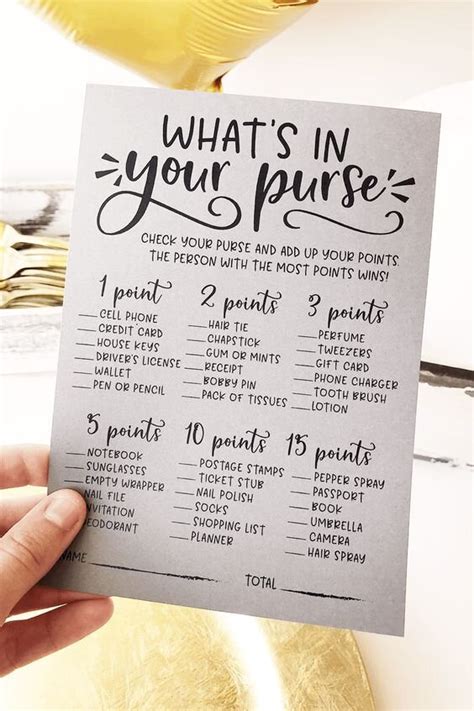 WHAT'S IN
your purse
CHECK YOUR PURSE AND ADD UP YOUR POINTS.
THE PERSON WITH THE MOST POINTS WINS!
1 point
CELL PHONE
CREDIT CARD
HOUSE KEYS
DRIVER'S LICENSE
WALLET
PEN OR PENCIL
2 points
HAIR TIE
CHAPSTICK
GUM OR MINTS
RECEIPT
BOBBY PIN
PACK OF TISSUES
3 points
PERFUME
TWEEZERS
GIFT CARD
PHONE CHARGER
TOOTH BRUSH
LOTION
5 points
NOTEBOOK
SUNGLASSES
EMPTY WRAPPER
NAIL FILE
INVITATION
DEODORANT
10 points
POSTAGE STAMPS
TICKET STUB
NAIL POLISH
SOCKS
SHOPPING LIST
PLANNER
15 points
PEPPER SPRAY
PASSPORT
BOOK
UMBRELLA
CAMERA
HAIR SPRAY
NAME TOTAL